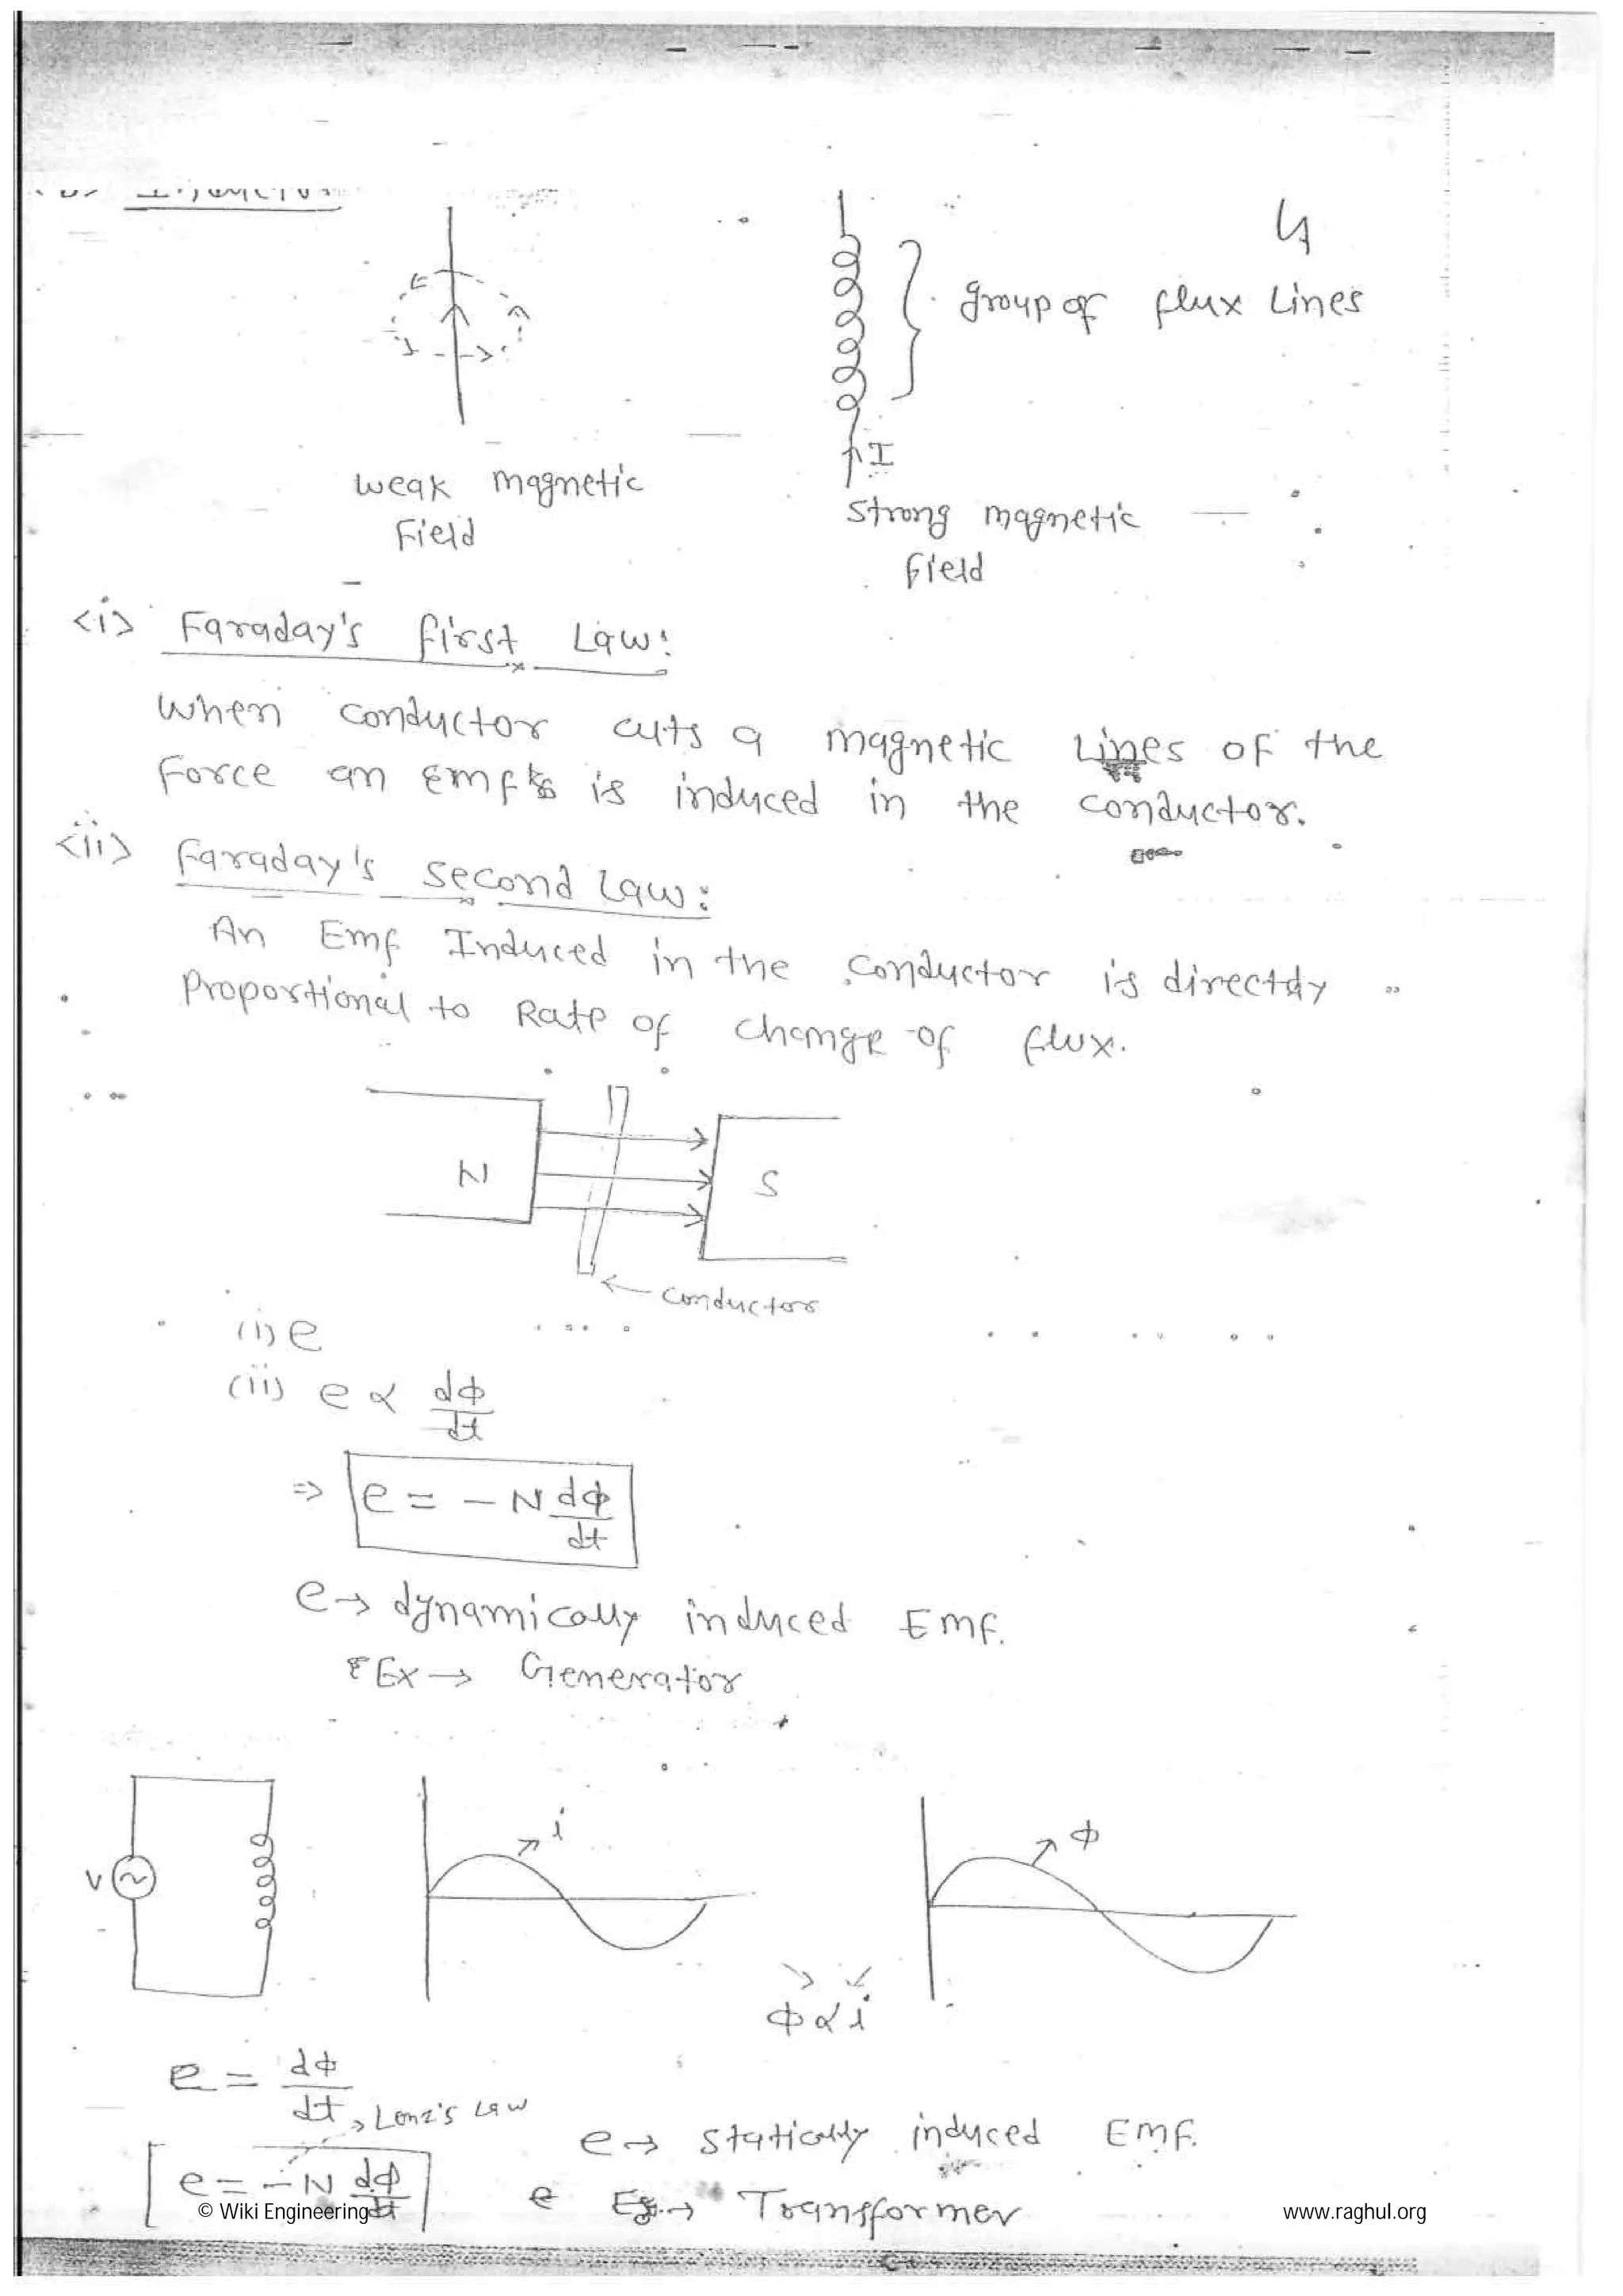 4
group of flux Lines
I
weak magnetic
Field
strong magnetic
field
<i> Faraday's first Law:
When conductor cuts a magnetic Lines of the
Force an Emf is induced in the conductor.
<ii> Faraday's second Law:
An Emf Induced in the conductor is directly
Proportional to Rate of change of flux.
N
S
← conductor
(i) e
(ii) e ∝ dφ/dt
⇒ e = - N dφ/dt
e → dynamically induced Emf.
Ex → Generator
V
i
φ
φ ∝ i
e = dφ/dt
Lenz's Law
e = - N dφ/dt
e → statically induced Emf.
e Eg. → Transformer
© Wiki Engineering
www.raghul.org